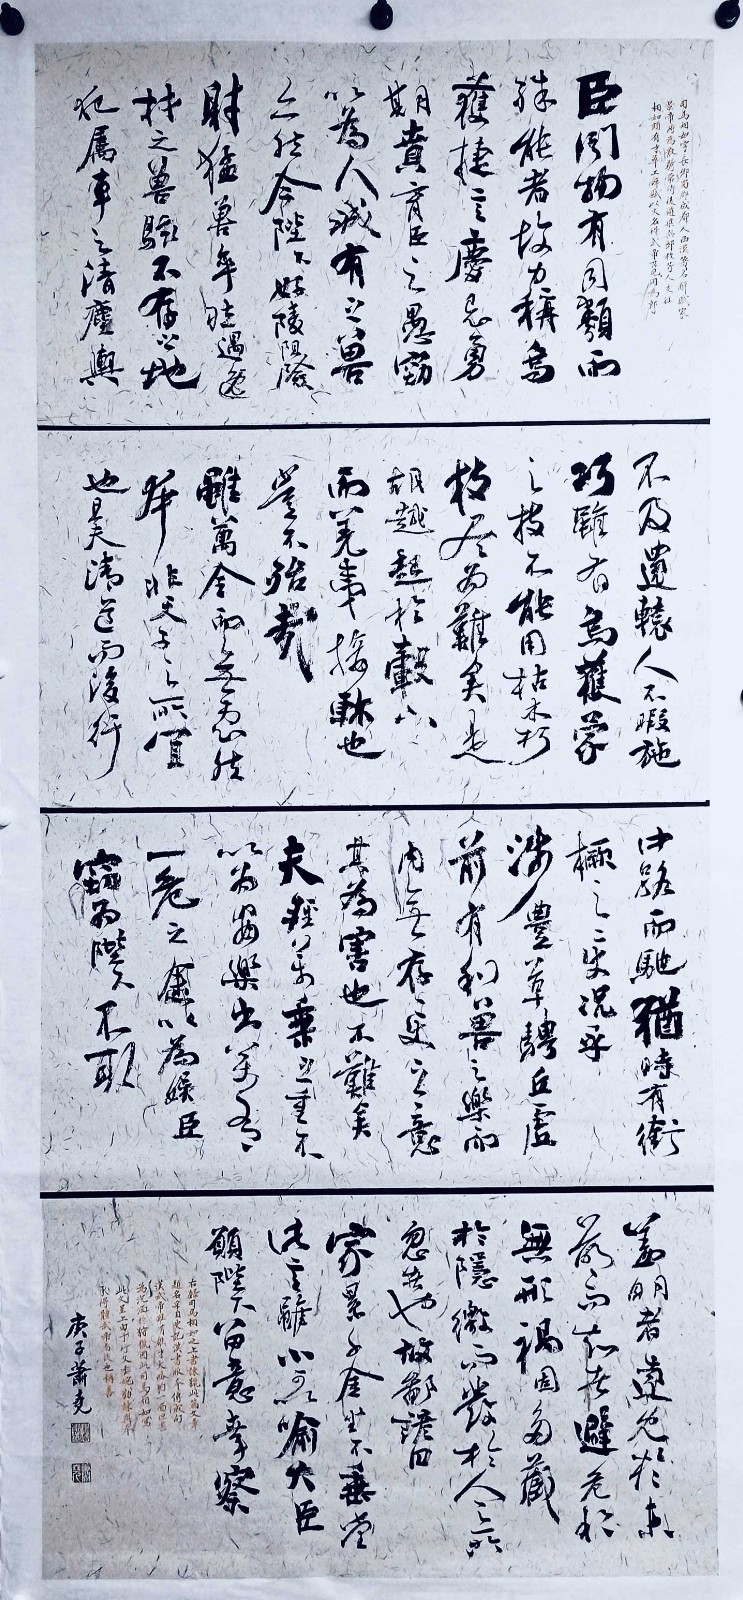 司馬相如字長卿蜀郡成都人西漢
臣聞物有同類而
殊能者故力稱烏
獲捷言慶忌勇
期賁育臣之愚竊
以為人誠有之獸
亦然今陛下好陵阻險
射猛獸卒然遇逸
材之獸駭不存之地
犯屬車之清塵輿
不及還轅人不暇施
巧雖有烏獲逢蒙
之技不能用枯木朽
枝盡為難矣是
胡越起於轂下
而羌夷接軫也
豈不殆哉
雖萬全而無患然
本非天子之所宜
也且夫清道而後行
中路而馳猶時有銜
橛之變況乎
涉豐草騁丘虛
前有利獸之樂而
內無存變之意
其為害也不難矣
夫輕萬乘之重不
以為安樂出萬有
一危之塗以為娛臣
竊為陛下不取
蓋明者遠見於未
萌而知者避危於
無形禍固多藏
於隱微而發於人之所
忽者也故鄙諺曰
家累千金坐不垂堂
此言雖小可以喻大臣
願陛下留意幸察
右錄司馬相如之上書諫獵此篇文章
庚子蕭克